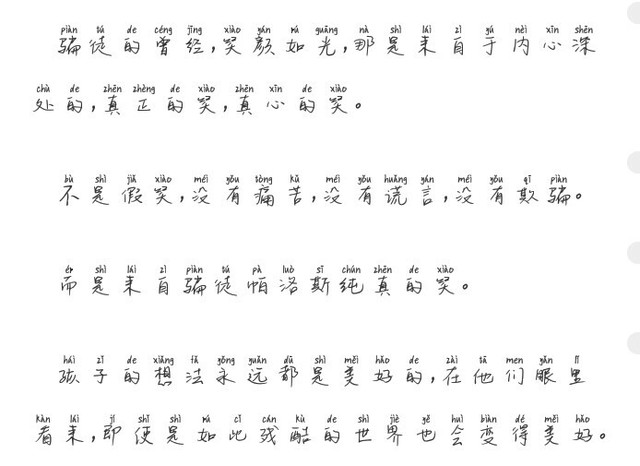 piàn tú de céng jīng xiào yán rú guāng nà shì lái zì yú nèi xīn shēn
骗徒的曾经,笑颜如光,那是来自于内心深
chù de zhēn zhèng de xiào zhēn xīn de xiào
处的,真正的笑,真心的笑。
bù shì jiǎ xiào méi yǒu tòng kǔ méi yǒu huǎng yán méi yǒu qī piàn
不是假笑,没有痛苦,没有谎言,没有欺骗。
ér shì lái zì piàn tú pà luò sī chún zhēn de xiào
而是来自骗徒帕洛斯纯真的笑。
hái zǐ de xiǎng fǎ yǒng yuǎn dū shì měi hǎo de zài tā men yǎn lǐ
孩子的想法永远都是美好的,在他们眼里
kàn lái jí shǐ shì rú cǐ cán kù de shì jiè yě huì biàn dé měi hǎo
看来,即使是如此残酷的世界也会变得美好。